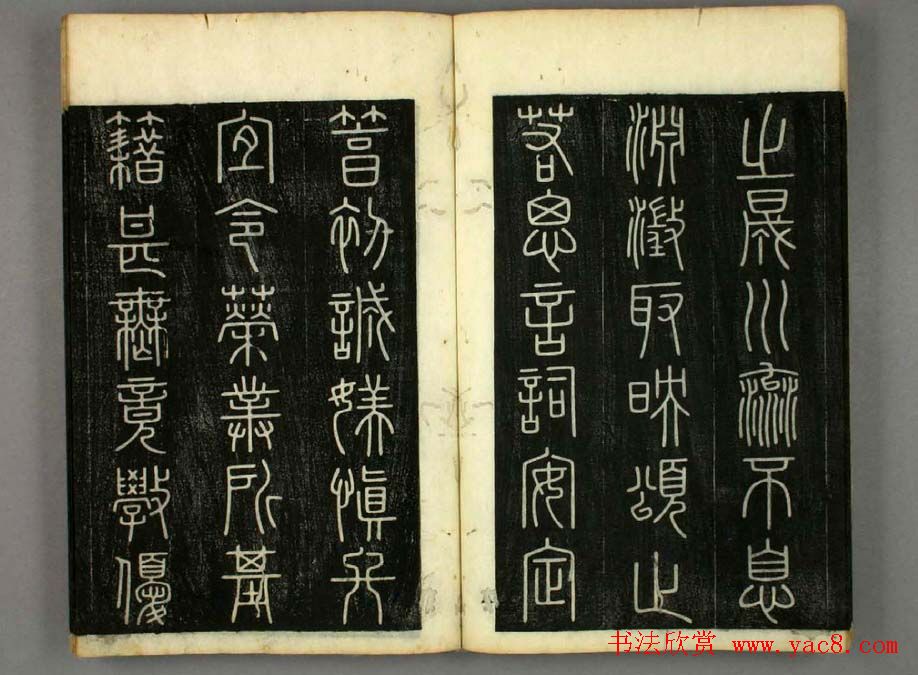 之晟川流不息
淵澂取映頌止
若思言詞安定
䈞初誠媄慎終
宜令榮業所基
籍甚無竟斅優
书法欣赏 www.yac8.com